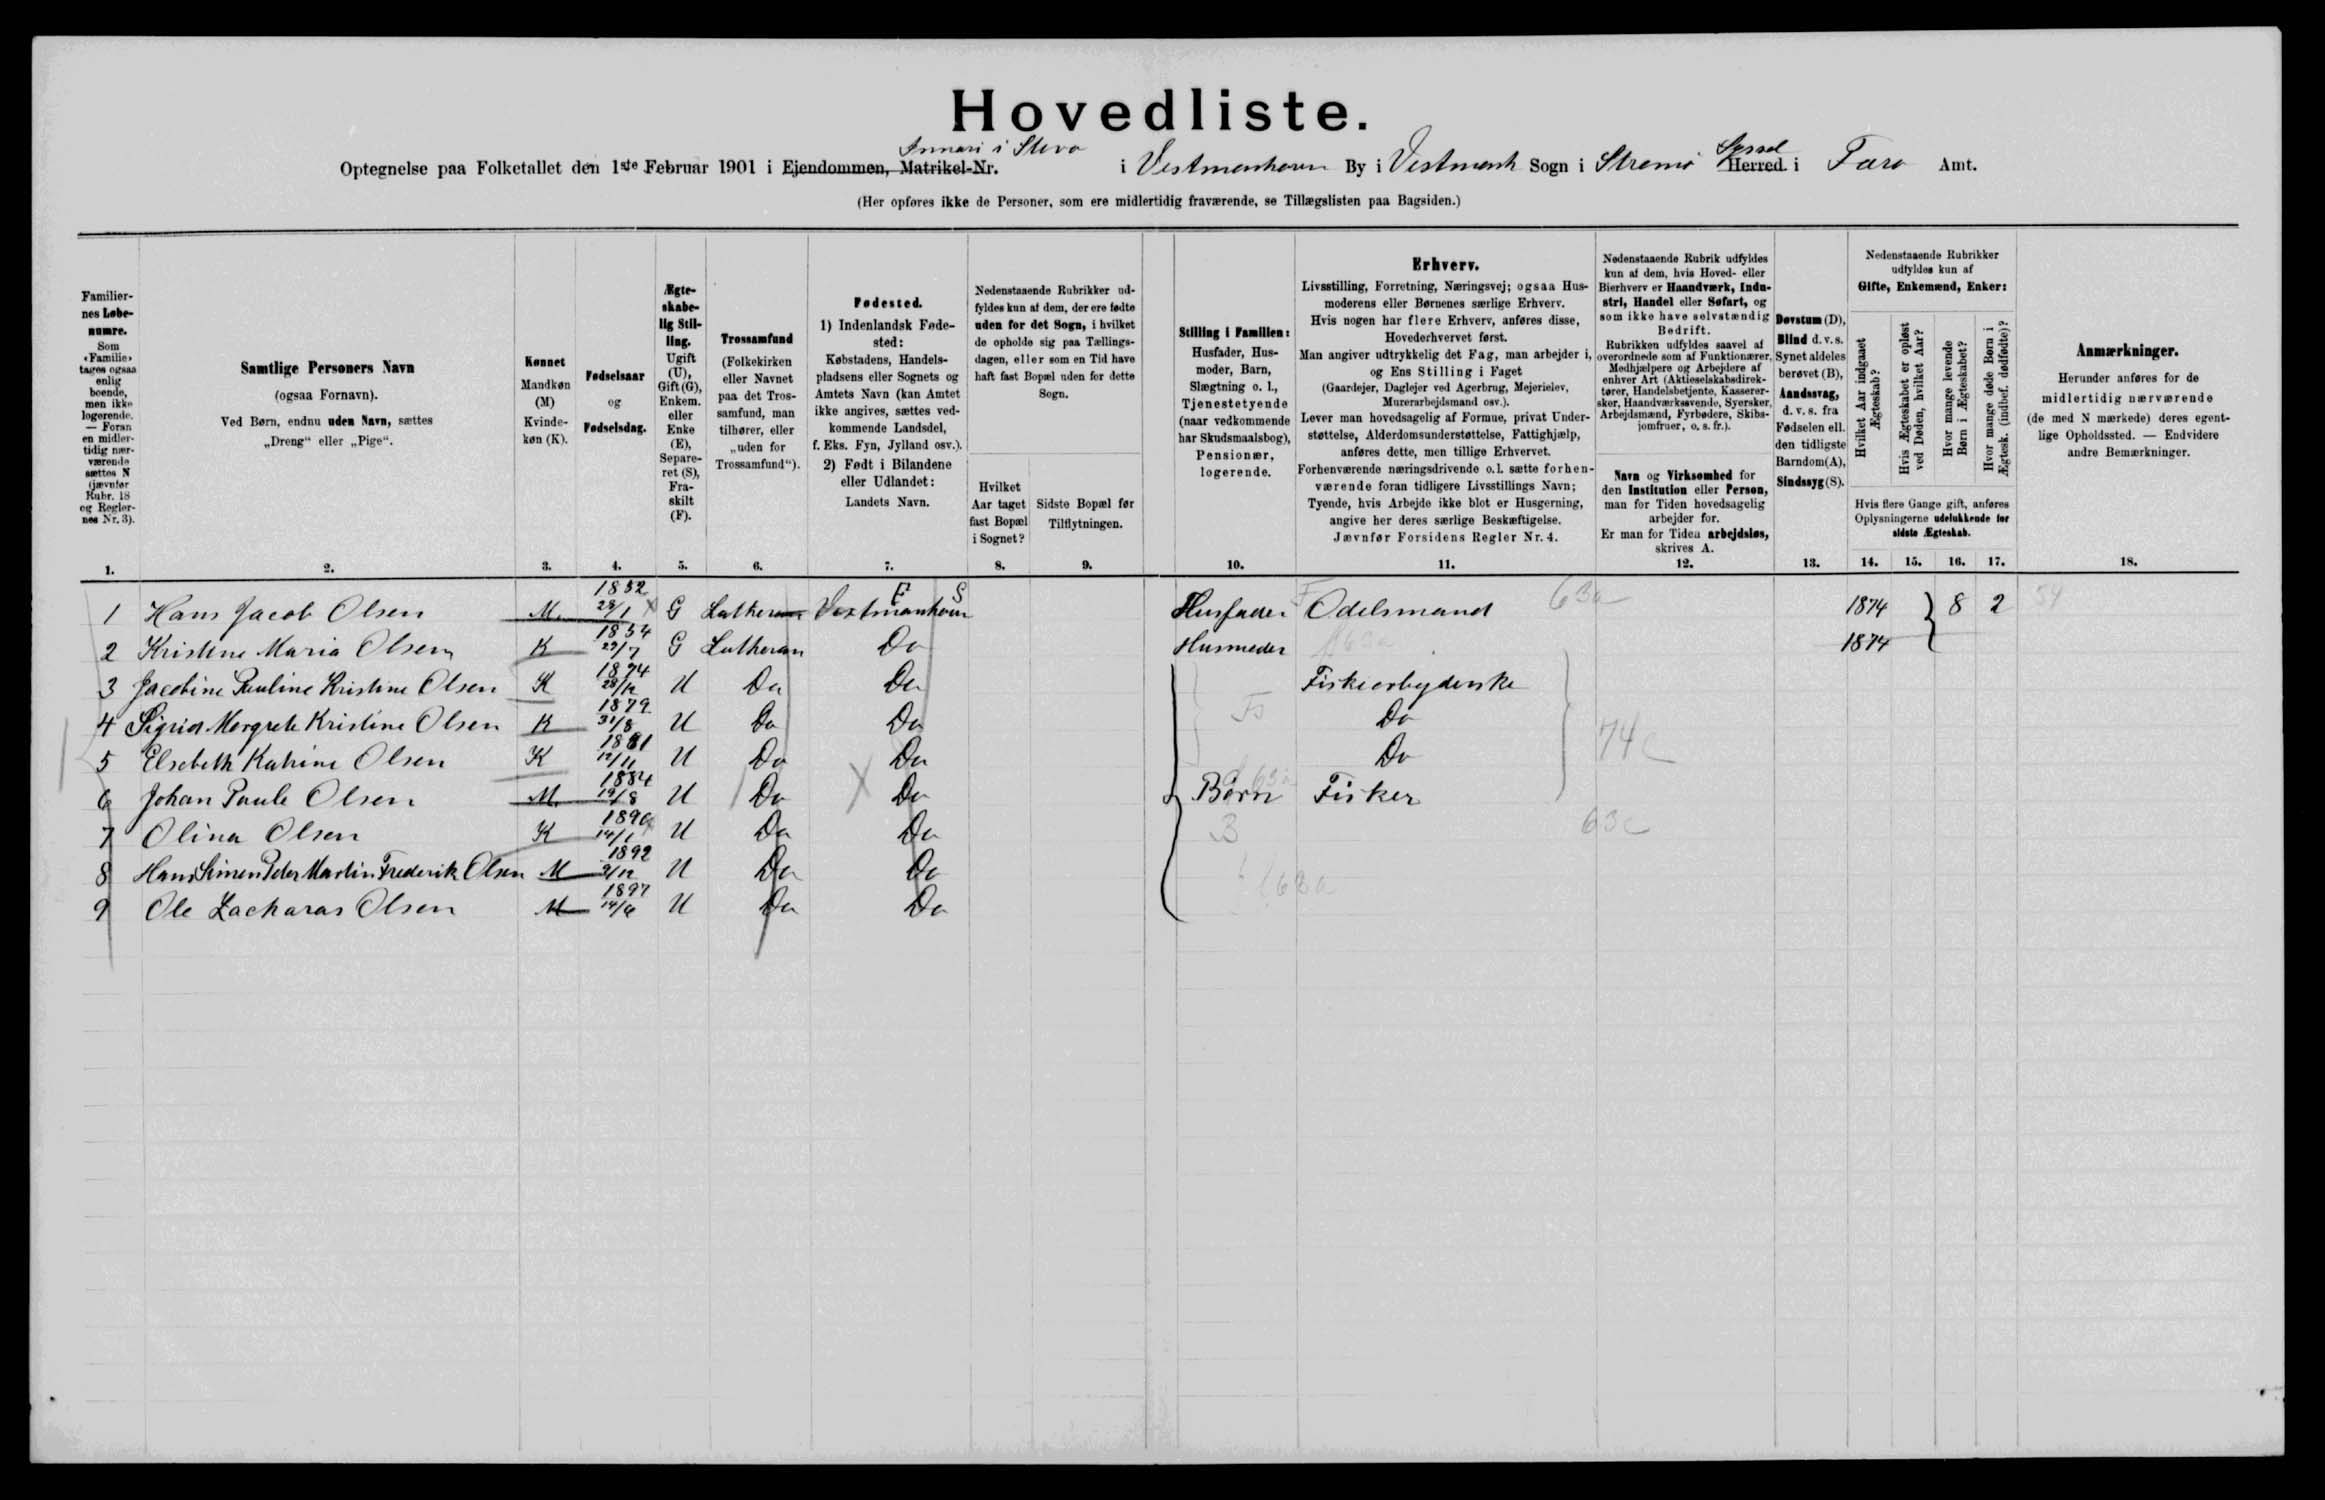 Hovedliste.
Innari i Stova
Optegnelse paa Folketallet den 1ste Februar 1901 i Ejendommen, Matrikel-Nr. i Vestmanhavn By i Vestmanh Sogn i Strømø Syssel Herred i Færø Amt.
(Her opføres ikke de Personer, som ere midlertidig fraværende, se Tillægslisten paa Bagsiden.)
Familier-
nes Løbe-
numre.
Som
«Familie»
tages ogsaa
enlig
boende,
men ikke
logerende.
— Foran
en midler-
tidig nær-
værende
sættes N
(jævnfør
Rubr. 18
og Regler-
nes Nr. 3).
Samtlige Personers Navn
(ogsaa Fornavn).
Ved Børn, endnu uden Navn, sættes
„Dreng“ eller „Pige“.
Kønnet
Mandkøn
(M)
Kvinde-
køn (K).
Fødselsaar
og
Fødselsdag.
Ægte-
skabe-
lig Stil-
ling.
Ugift
(U),
Gift (G),
Enkem.
eller
Enke
(E),
Separe-
ret (S),
Fra-
skilt
(F).
Trossamfund
(Folkekirken
eller Navnet
paa det Tros-
samfund, man
tilhører, eller
„uden for
Trossamfund“).
Fødested.
1) Indenlandsk Føde-
sted:
Købstadens, Handels-
pladsens eller Sognets og
Amtets Navn (kan Amtet
ikke angives, sættes ved-
kommende Landsdel,
f. Eks. Fyn, Jylland osv.).
2) Født i Bilandene
eller Udlandet:
Landets Navn.
Nedenstaaende Rubrikker ud-
fyldes kun af dem, der ere fødte
uden for det Sogn, i hvilket
de opholde sig paa Tællings-
dagen, eller som en Tid have
haft fast Bopæl uden for dette
Sogn.
Hvilket
Aar taget
fast Bopæl
i Sognet?
Sidste Bopæl før
Tilflytningen.
Stilling i Familien:
Husfader, Hus-
moder, Barn,
Slægtning o. l.,
Tjenestetyende
(naar vedkommende
har Skudsmaalsbog),
Pensionær,
logerende.
Erhverv.
Livsstilling, Forretning, Næringsvej; ogsaa Hus-
moderens eller Børnenes særlige Erhverv.
Hvis nogen har flere Erhverv, anføres disse,
Hovederhvervet først.
Man angiver udtrykkelig det Fag, man arbejder i,
og Ens Stilling i Faget
(Gaardejer, Daglejer ved Agerbrug, Mejerielev,
Murerarbejdsmand osv.).
Lever man hovedsagelig af Formue, privat Under-
støttelse, Alderdomsunderstøttelse, Fattighjælp,
anføres dette, men tillige Erhvervet.
Forhenværende næringsdrivende o. l. sætte forhen-
værende foran tidligere Livsstillings Navn;
Tyende, hvis Arbejde ikke blot er Husgerning,
angive her deres særlige Beskæftigelse.
Jævnfør Forsidens Regler Nr. 4.
Nedenstaaende Rubrik udfyldes
kun af dem, hvis Hoved- eller
Bierhverv er Haandværk, Indu-
stri, Handel eller Søfart, og
som ikke have selvstændig
Bedrift.
Rubrikken udfyldes saavel af
overordnede som af Funktionærer,
Medhjælpere og Arbejdere af
enhver Art (Aktieselskabsdirek-
tører, Handelsbetjente, Kasserer-
sker, Haandværkssvende, Syersker,
Arbejdsmænd, Fyrbødere, Skibs-
jomfruer, o. s. fr.).
Navn og Virksomhed for
den Institution eller Person,
man for Tiden hovedsagelig
arbejder for.
Er man for Tiden arbejdsløs,
skrives A.
Døvstum (D),
Blind d. v. s.
Synet aldeles
berøvet (B),
Aandssvag,
d. v. s. fra
Fødselen ell.
den tidligste
Barndom (A),
Sindssyg (S).
Nedenstaaende Rubrikker
udfyldes kun af
Gifte, Enkemænd, Enker:
Hvilket Aar indgaaet
Ægteskab?
Hvis Ægteskabet er opløst
ved Døden, hvilket Aar?
Hvor mange levende
Børn i Ægteskabet?
Hvor mange døde Børn i
Ægtesk. (indbef. dødfødte)?
Hvis flere Gange gift, anføres
Oplysningerne udelukkende for
sidste Ægteskab.
Anmærkninger.
Herunder anføres for de
midlertidig nærværende
(de med N mærkede) deres egent-
lige Opholdssted. — Endvidere
andre Bemærkninger.
1. 2. 3. 4. 5. 6. 7. 8. 9. 10. 11. 12. 13. 14. 15. 16. 17. 18.
1 Hans Jacob Olsen M. 1852 28/1 G Lutheran Vestmanhavn Husfader Odelsmand 63a 1874 8 2 54
2 Kristine Maria Olsen K 1854 29/7 G Lutheran Do Husmoder 1874
3 Jacobine Pauline Kristine Olsen K 1874 28/12 U Do Do Fiskearbejderske
4 Sigrid Margrete Kristine Olsen K 1879 31/8 U Do Do Do
5 Elsebeth Katrine Olsen K 1881 12/11 U Do Do Do 74c
6 Johan Paule Olsen M. 1884 19/8 U Do Do Børn Fisker
7 Olina Olsen K 1890 14/1 U Do Do B 63c
8 Hans Simon Peder Martin Frederik Olsen M 1892 9/12 U Do Do
9 Ole Zacharas Olsen M 1897 14/6 U Do Do